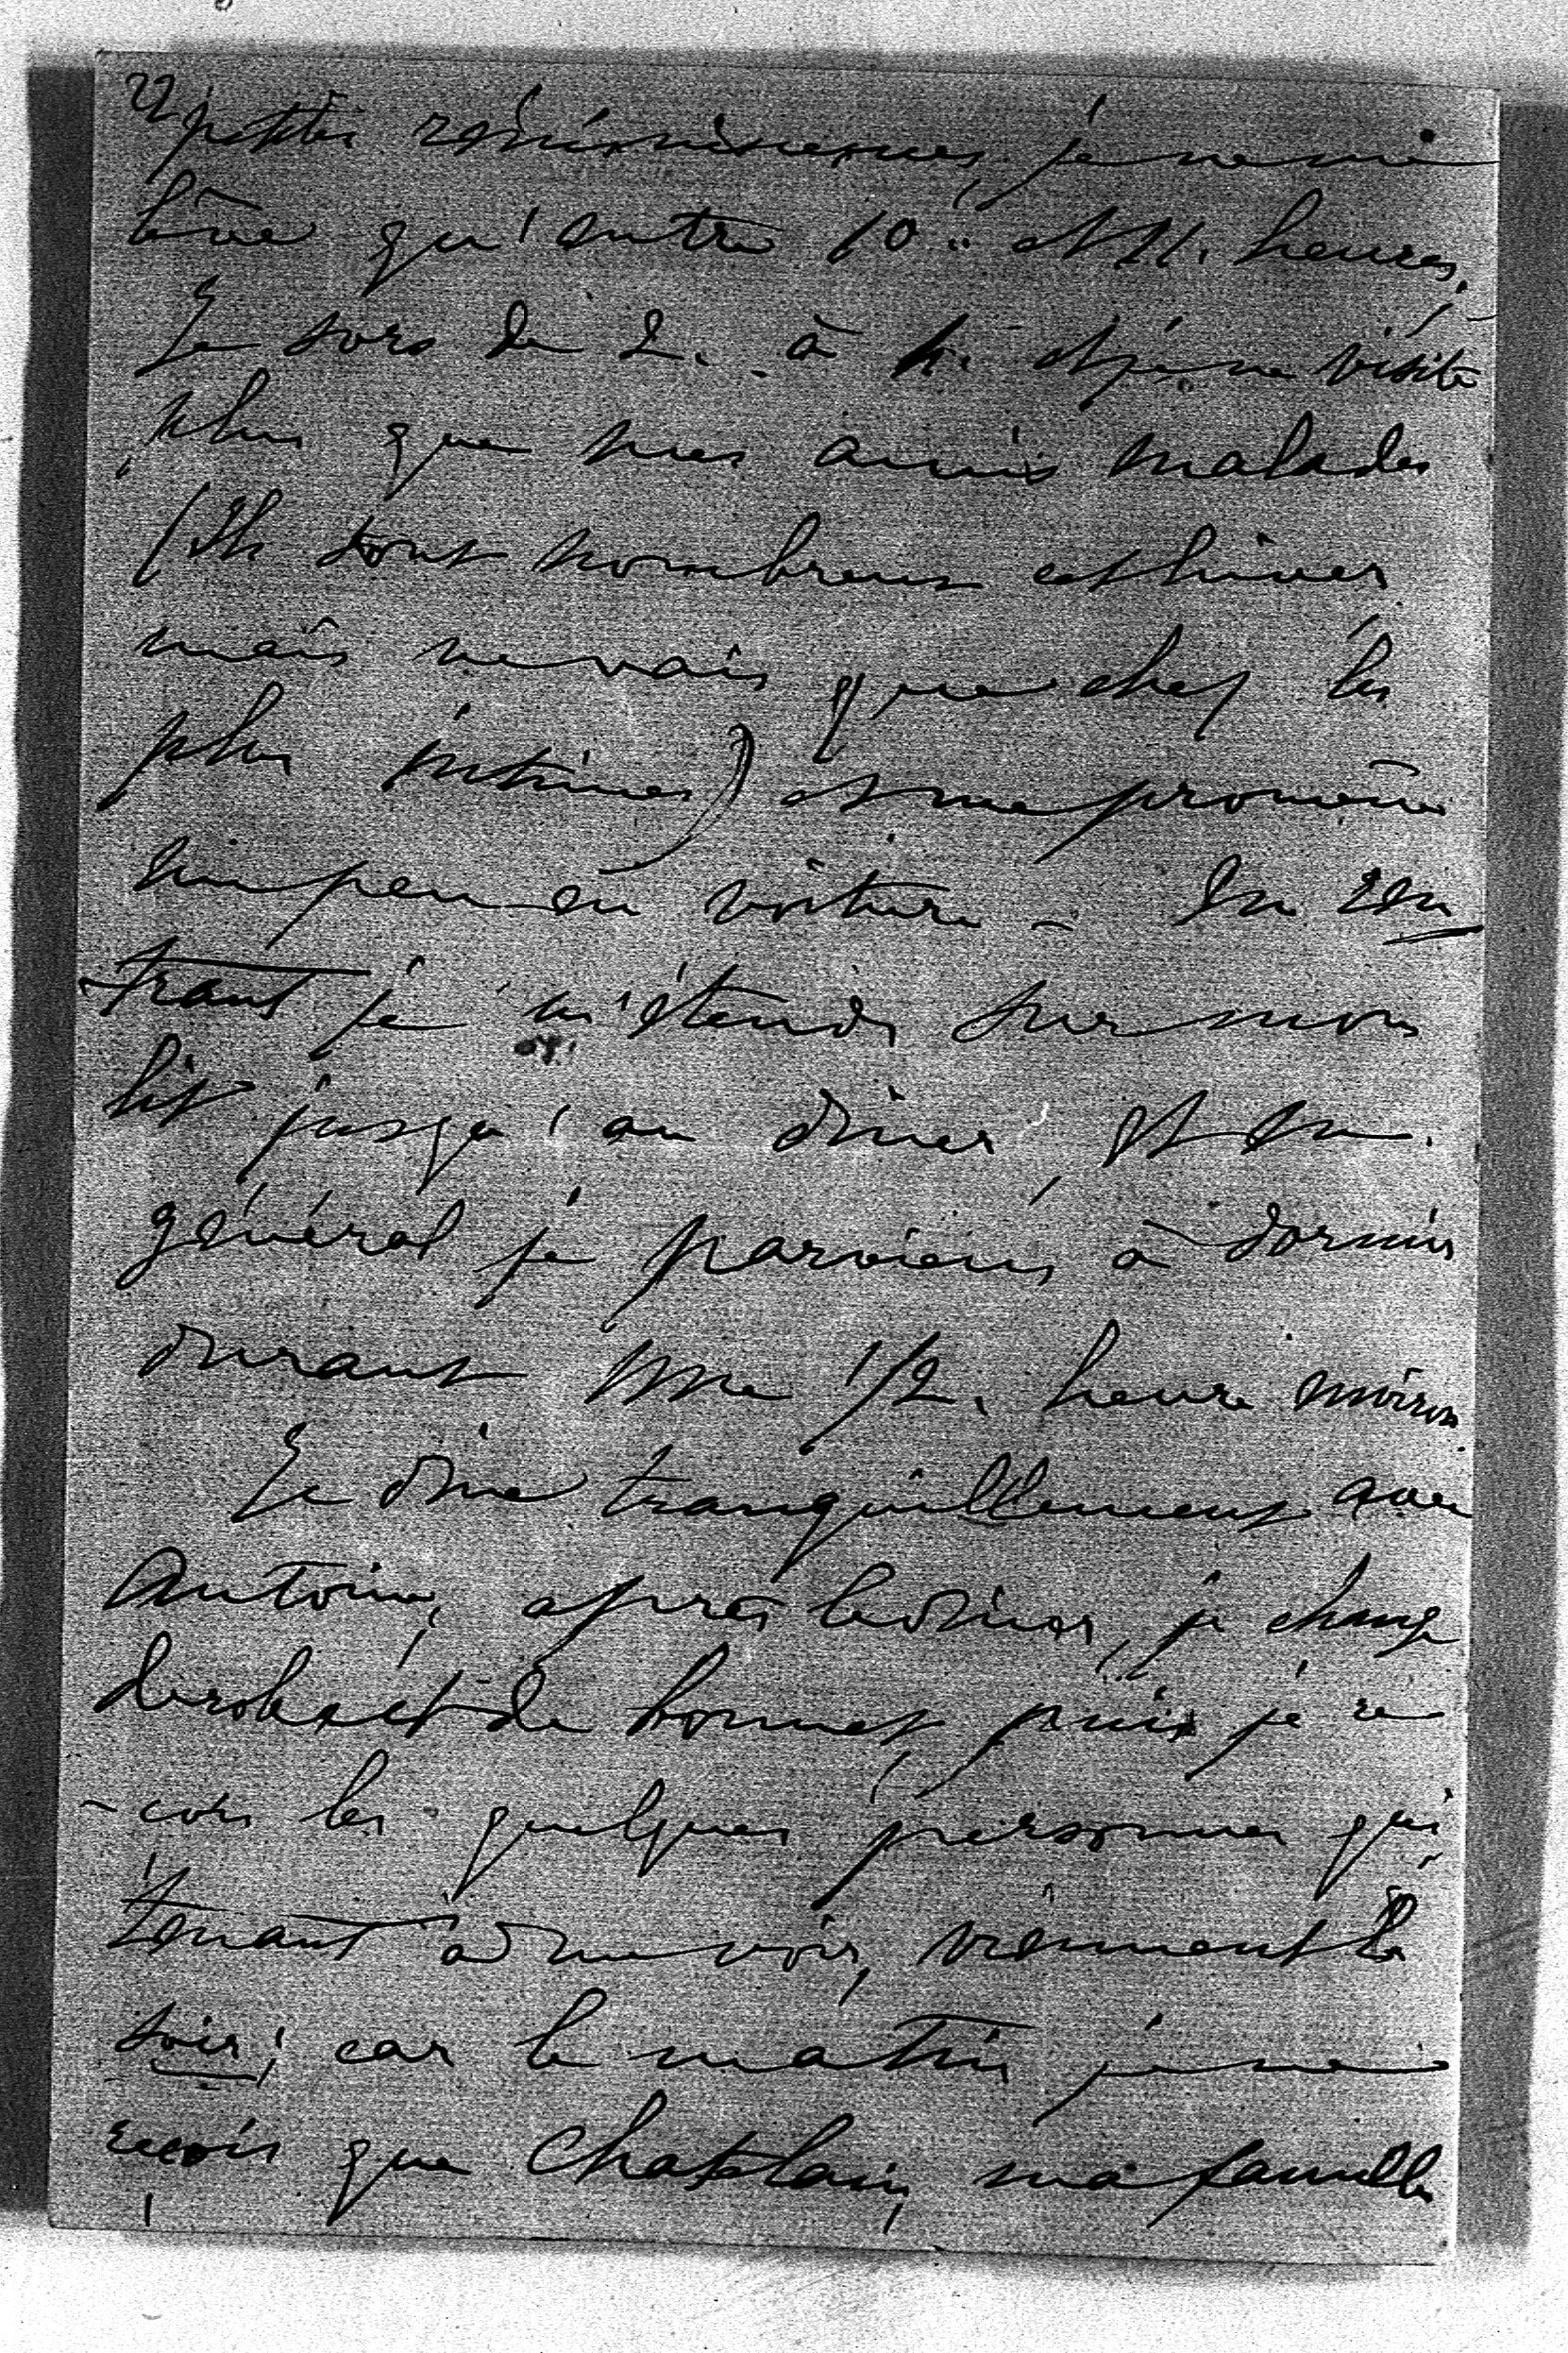 petites réminiscences, je ne me
lève qu'entre 10.. et 11. heures,
Je sors de 2. à 4. et je ne visite
plus que mes amis malades
(Ils sont nombreux cet hiver,
mais ne vais que chez les
plus intimes) et me promène
un peu en voiture – En ren
-trant je m'étends sur mon
lit jusqu'au dîner, et en
général je parviens à dormir
durant une 1/2. heure environ.
Je dîne tranquillement avec
Antoine, après le dîner, je change
de robe et de bonnet, puis je re
-çois les quelques personnes qui,
tenant à me voir, viennent le
soir; car le matin je ne
reçois que Chatelain, ma famille